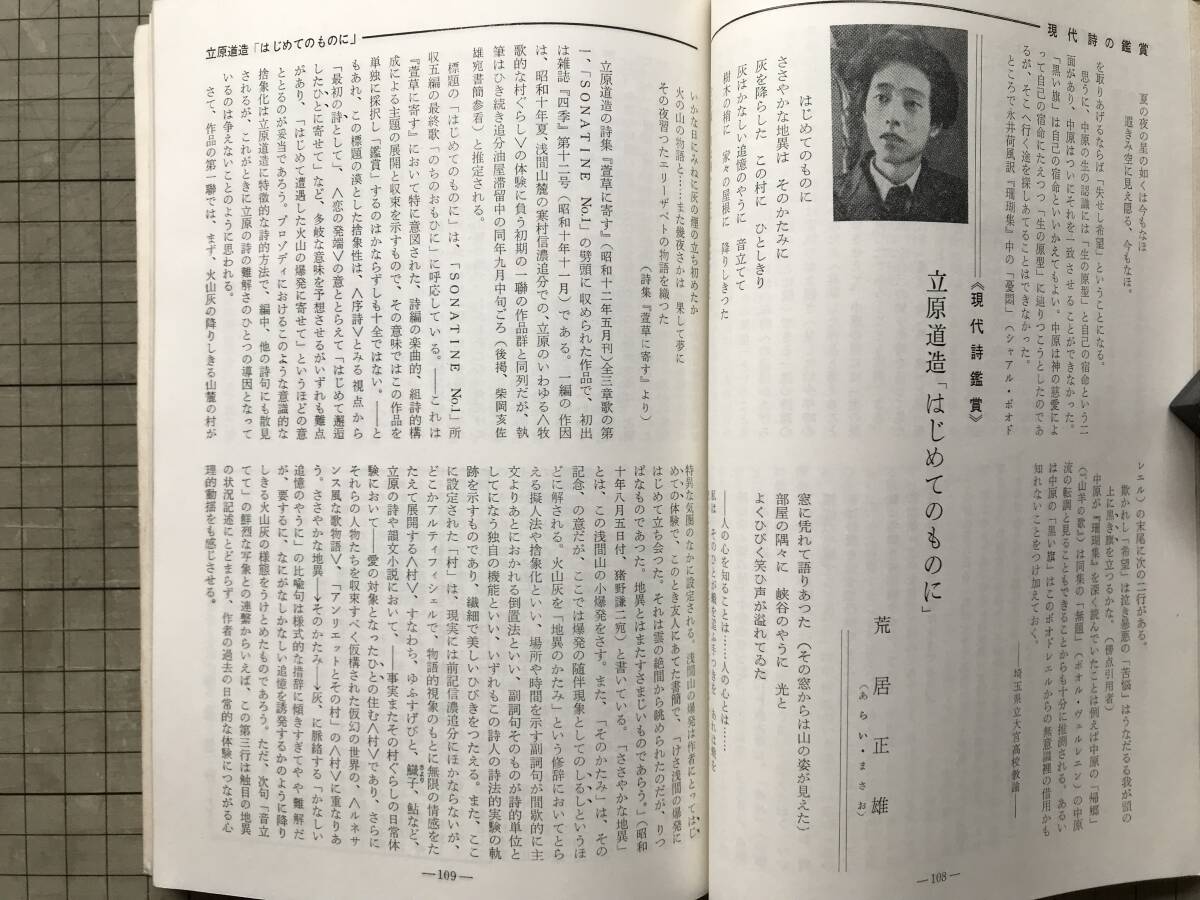 現代詩の鑑賞
夏の夜の星の如くは今もなほ
遐きみ空に見え隠る、今もなほ。
を取りあげるならば「失せし希望」ということになる。
思うに、中原の生の認識には「生の原型」と自己の宿命という二
面があり、中原はついにそれを一致させることができなかった。
「黒い旗」は自己の宿命といいかえてもよい。中原は神の慈愛によ
って自己の宿命にたえつつ「生の原型」に辿りつこうとしたのであ
るが、そこへ行く途を探しあてることはできなかった。
ところで永井荷風訳『珊瑚集』中の「憂悶」（シャアル・ボオド
レェル）の末尾に次の二行がある。
欺かれし「希望」は泣き暴悪の「苦悩」はうなだるる我が頭の
上に黒き旗を立つるかな。（傍点引用者）
中原が『珊瑚集』を深く読んでいたことは例えば中原の「帰郷」
（『山羊の歌』）は同集の「無題」（ポオル・ヴェルレエン）の中原
流の転調と見ることもできることからも十分に推測される。あるい
は中原の「黒い旗」はこのボオドレェルからの無意識裡の借用かも
知れないことをつけ加えておく。
―埼玉県立大宮高校教諭―
《現代詩鑑賞》
立原道造「はじめてのものに」
荒居正雄
（あらい・まさお）
はじめてのものに
ささやかな地異は　そのかたみに
灰を降らした　この村に　ひとしきり
灰はかなしい追憶のやうに　音立てて
樹木の梢に　家々の屋根に　降りしきつた
窓に凭れて語りあつた（その窓からは山の姿が見えた）
部屋の隅々に　峡谷のやうに　光と
よくひびく笑ひ声が溢れてゐた
――人の心を知ることは……人の心とは……
私は　そのひとが蛾を追ふ手つきを　あれは蛾を
―108―
立原道造「はじめてのものに」
いかな日にみねに灰の煙の立ち初めたか
火の山の物語と……また幾夜さかは　果して夢に
その夜習つたエリーザベトの物語を織つた
（詩集『萱草に寄す』より）
立原道造の詩集『萱草に寄す』（昭和十二年五月刊）全三章歌の第
一、「SONATINE No.1」の劈頭に収められた作品で、初出
は雑誌『四季』第十二号（昭和十年十一月）である。一編の作因
は、昭和十年夏、浅間山麓の寒村信濃追分での、立原のいわゆる〈牧
歌的な村ぐらし〉の体験に負う初期の一聯の作品群と同列だが、執
筆はひき続き追分油屋滞留中の同年九月中旬ごろ（後掲、柴岡亥佐
雄宛書簡参看）と推定される。
標題の「はじめてのものに」は、「SONATINE No.1」所
収五編の最終歌「のちのおもひに」に呼応している。――これは
『萱草に寄す』において特に意図された、詩編の楽曲的、組詩的構
成による主題の展開と収束を示すもので、その意味ではこの作品を
単独に採択し「鑑賞」するのはかならずしも十全ではない。――と
もあれ、この標題の漠とした捨象性は、〈序詩〉とみる視点から
「最初の詩として」、〈恋の発端〉の意ととらえて「はじめて邂逅
したひとに寄せて」など、多岐な意味を予想させるがいずれも難点
があり、「はじめて遭遇した火山の爆発に寄せて」というほどの意
ととるのが妥当であろう。プロソディにおけるこのような意識的な
捨象化は立原道造に特徴的な詩的方法で、編中、他の詩句にも散見
されるが、これがときに立原の詩の難解さのひとつの導因となって
いるのは争えないことのように思われる。
さて、作品の第一聯では、まず、火山灰の降りしきる山麓の村が
特異な気圏のなかに設定される。浅間山の爆発は作者にとってはじ
めての体験で、このとき友人にあてた書簡で、「けさ浅間の爆発に
はじめて立ち会つた。それは雲の絶間から眺められたのだが、りつ
ぱなものであつた。地異とはまたすさまじいものであらう。」（昭和
十年八月五日付、猪野謙二宛）と書いている。「ささやかな地異」
とは、この浅間山の小爆発をさす。また、「そのかたみ」は、その
記念、の意だが、ここでは爆発の随伴現象としてのしるしというほ
どに解される。火山灰を「地異のかたみ」という修辞においてとら
える擬人法や捨象化といい、場所や時間を示す副詞句が間歇的に主
文よりあとにおかれる倒置法といい、副詞句そのものが詩的単位と
してになう独自の機能といい、いずれもこの詩人の詩法的実験の軌
跡を示すものであり、繊細で美しいひびきをつたえる。また、ここ
に設定された「村」は、現実には前記信濃追分にほかならないが、
どこかアルティフィシェルで、物語的視象のもとに無限の情感をた
たえて展開する〈村〉、すなわち、ゆふすげびと、鱵子、鮎など、
立原の詩や韻文小説において、――事実またその村ぐらしの日常体
験において――愛の対象となったひとの住む〈村〉であり、さらに
それらの人物たちを収束すべく仮構された仮幻の世界の、〈ルネサ
ンス風な歌物語〉、「アンリエットとその村」の〈村〉に重なりあ
う。ささやかな地異→そのかたみ→灰、に脈絡する「かなしい
追憶のやうに」の比喩句は様式的な措辞に傾きすぎてやや難解だ
が、要するに、なにがなしかなしい追憶を誘発するかのように降り
しきる火山灰の様態をうけとめたものであろう。ただ、次句「音立
てて」の鮮烈な写象との連繫からいえば、この第三行は触目の地異
の状況記述にとどまらず、作者の過去の日常的な体験につながる心
理的動揺をも感じさせる。
―109―